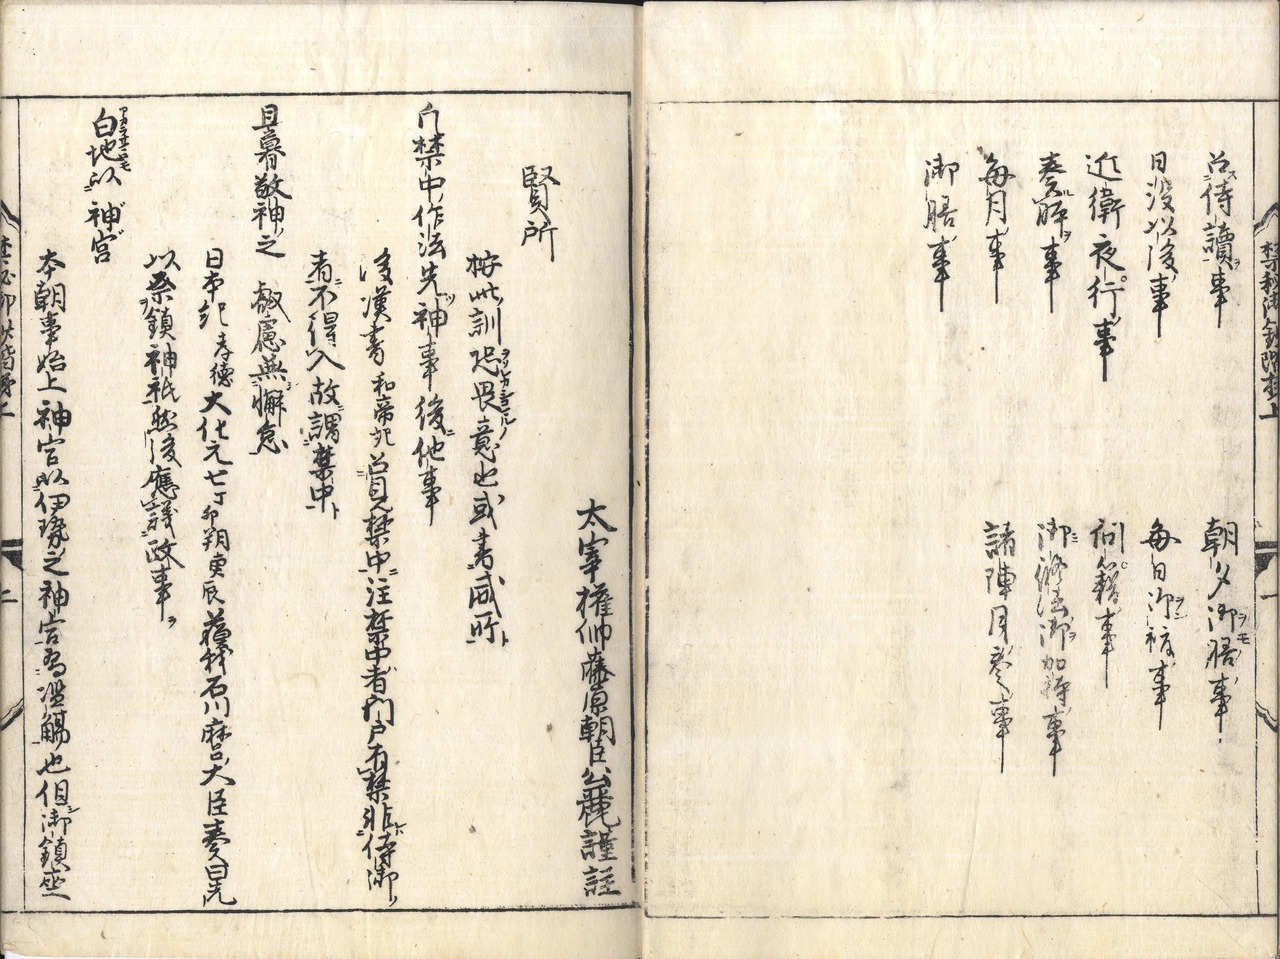 禁秘御鈔階梯上
召侍讀事
朝夕御膳事
日没以後事
毎日御祓事
近衛夜行事
問籍事
奏解事
御修法御加持事
毎月事
諸陣月奏事
御膳事
太宰權帥藤原朝臣公麗謹註
賢所
按此訓恐畏意也或書威所
凡禁中作法先神事後他事
後漢書和帝紀召見禁中注禁中者門戸有禁非侍御
者不得入故謂禁中
旦暮敬神之叡慮無懈怠
日本紀孝德大化元七丁卯朔庚辰蘇我石川麻呂大臣奏曰先
以祭鎮神祇然後應議政事
白地以神宮
本朝事始上神宮以伊勢之神宮為濫觴也但御鎮座